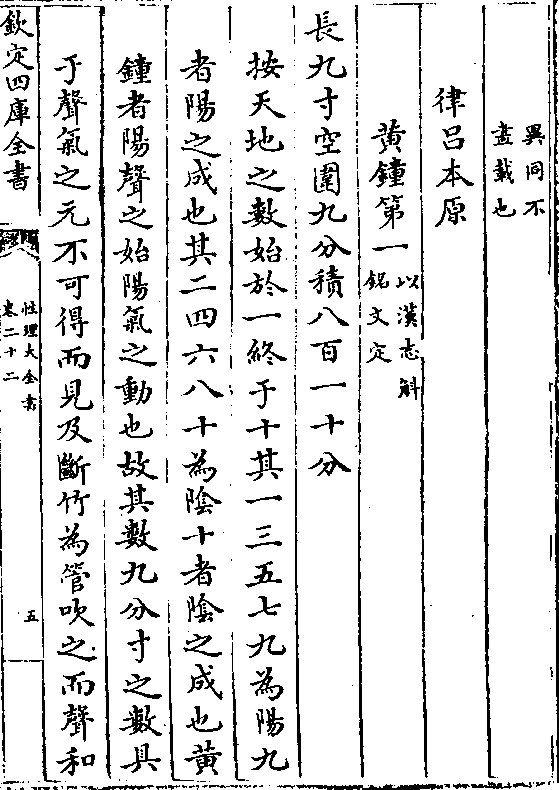 異同不
盡載也
律呂本原
黄鐘第一以漢志斛
銘文定
長九寸空圍九分積八百一十分
按天地之數始於一終于十其一三五七九為陽九
者陽之成也其二四六八十為陰十者陰之成也黄
鐘者陽聲之始陽氣之動也故其數九分寸之數具
于聲氣之元不可得而見及斷竹為管吹之而聲和
欽定四庫全書
性理大全書
卷二十二
五